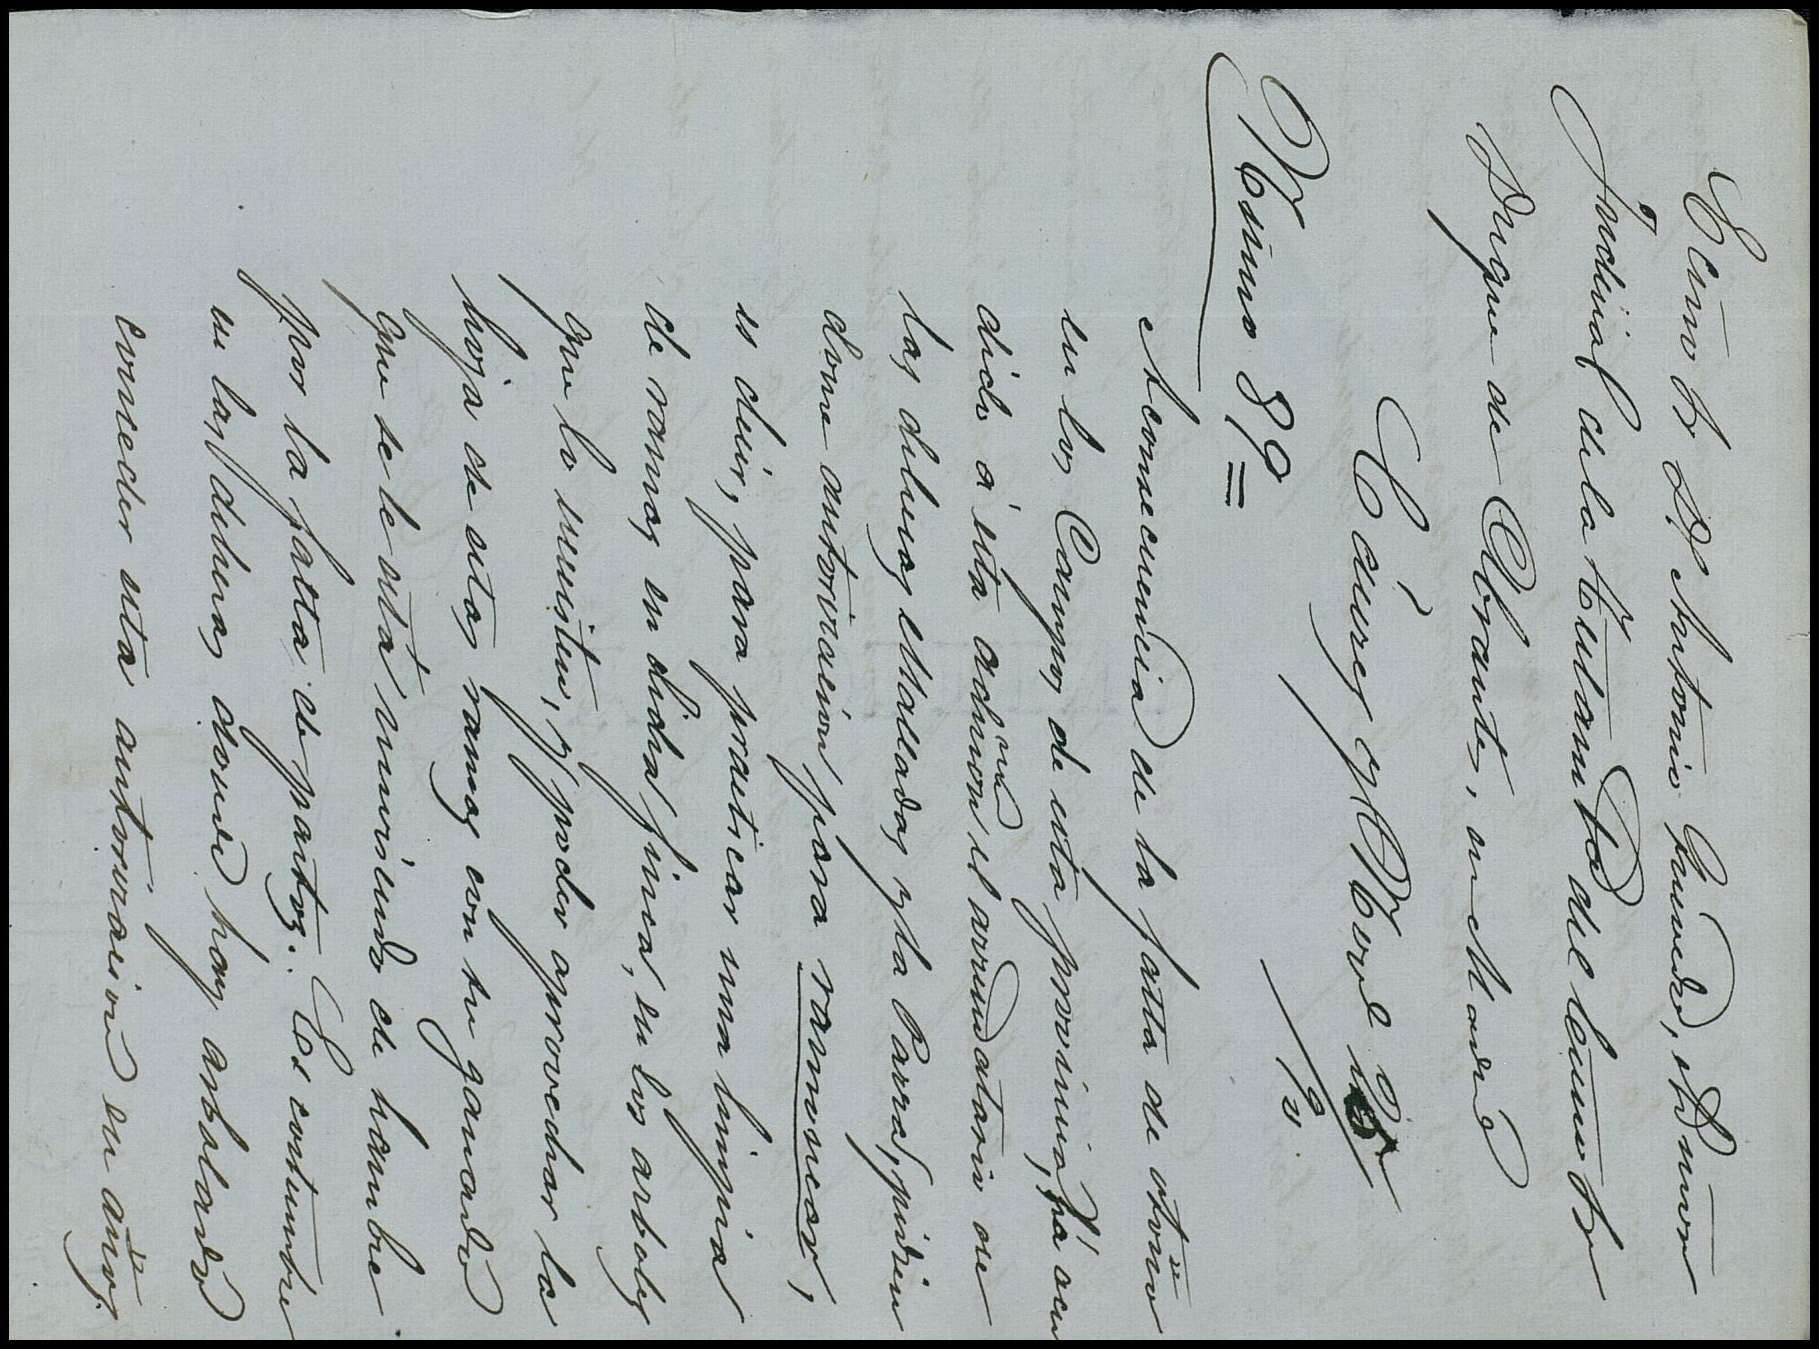 Ecmo Sr D. Antonio Ganuedo, Admor
Judicial de la Testam.ta del Ecmo Sr
Duque de Abrantes, en Madrid
Cáceres y Nove
Número 89=
A consecuencia de la falta de otoño
en los Campos de esta provincia, há acu
dido á esta admon el arrendatario de
las dehesas Malladas y la Parra, pidien
dome autorizacion para ramonear,
es decir, para practicar una limpia
de ramas en dicha finca, en los arboles
que lo necesiten, y poder aprovechar la
hoja de estas ramas con su ganado
que se le está muriendo de hambre
por la falta de pastos. Es costumbre
en las dehesas donde hay arbolado
conceder esta autorizacion en años